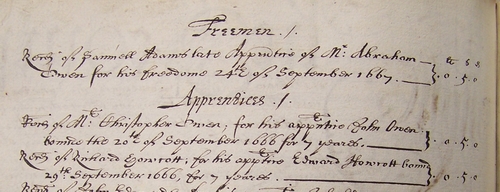 Freemen ./.
li s d
Recd of Samuell Adams late Apprntice of Mr. Abraham
Owen for his freedome 24th of September 1667. 0 . 5 . 0
Apprentices ./.
Recd of Mr. Christopher Owen, for his apprntice John Owen
bound the 20th of September 1666 for 7 yeares. 0 . 5 . 0
Recd of Richard Howcott, for his apprntice Edward Howcott bound
29th September 1666, for 7 yeares. 0 . 5 . 0
Recd of John